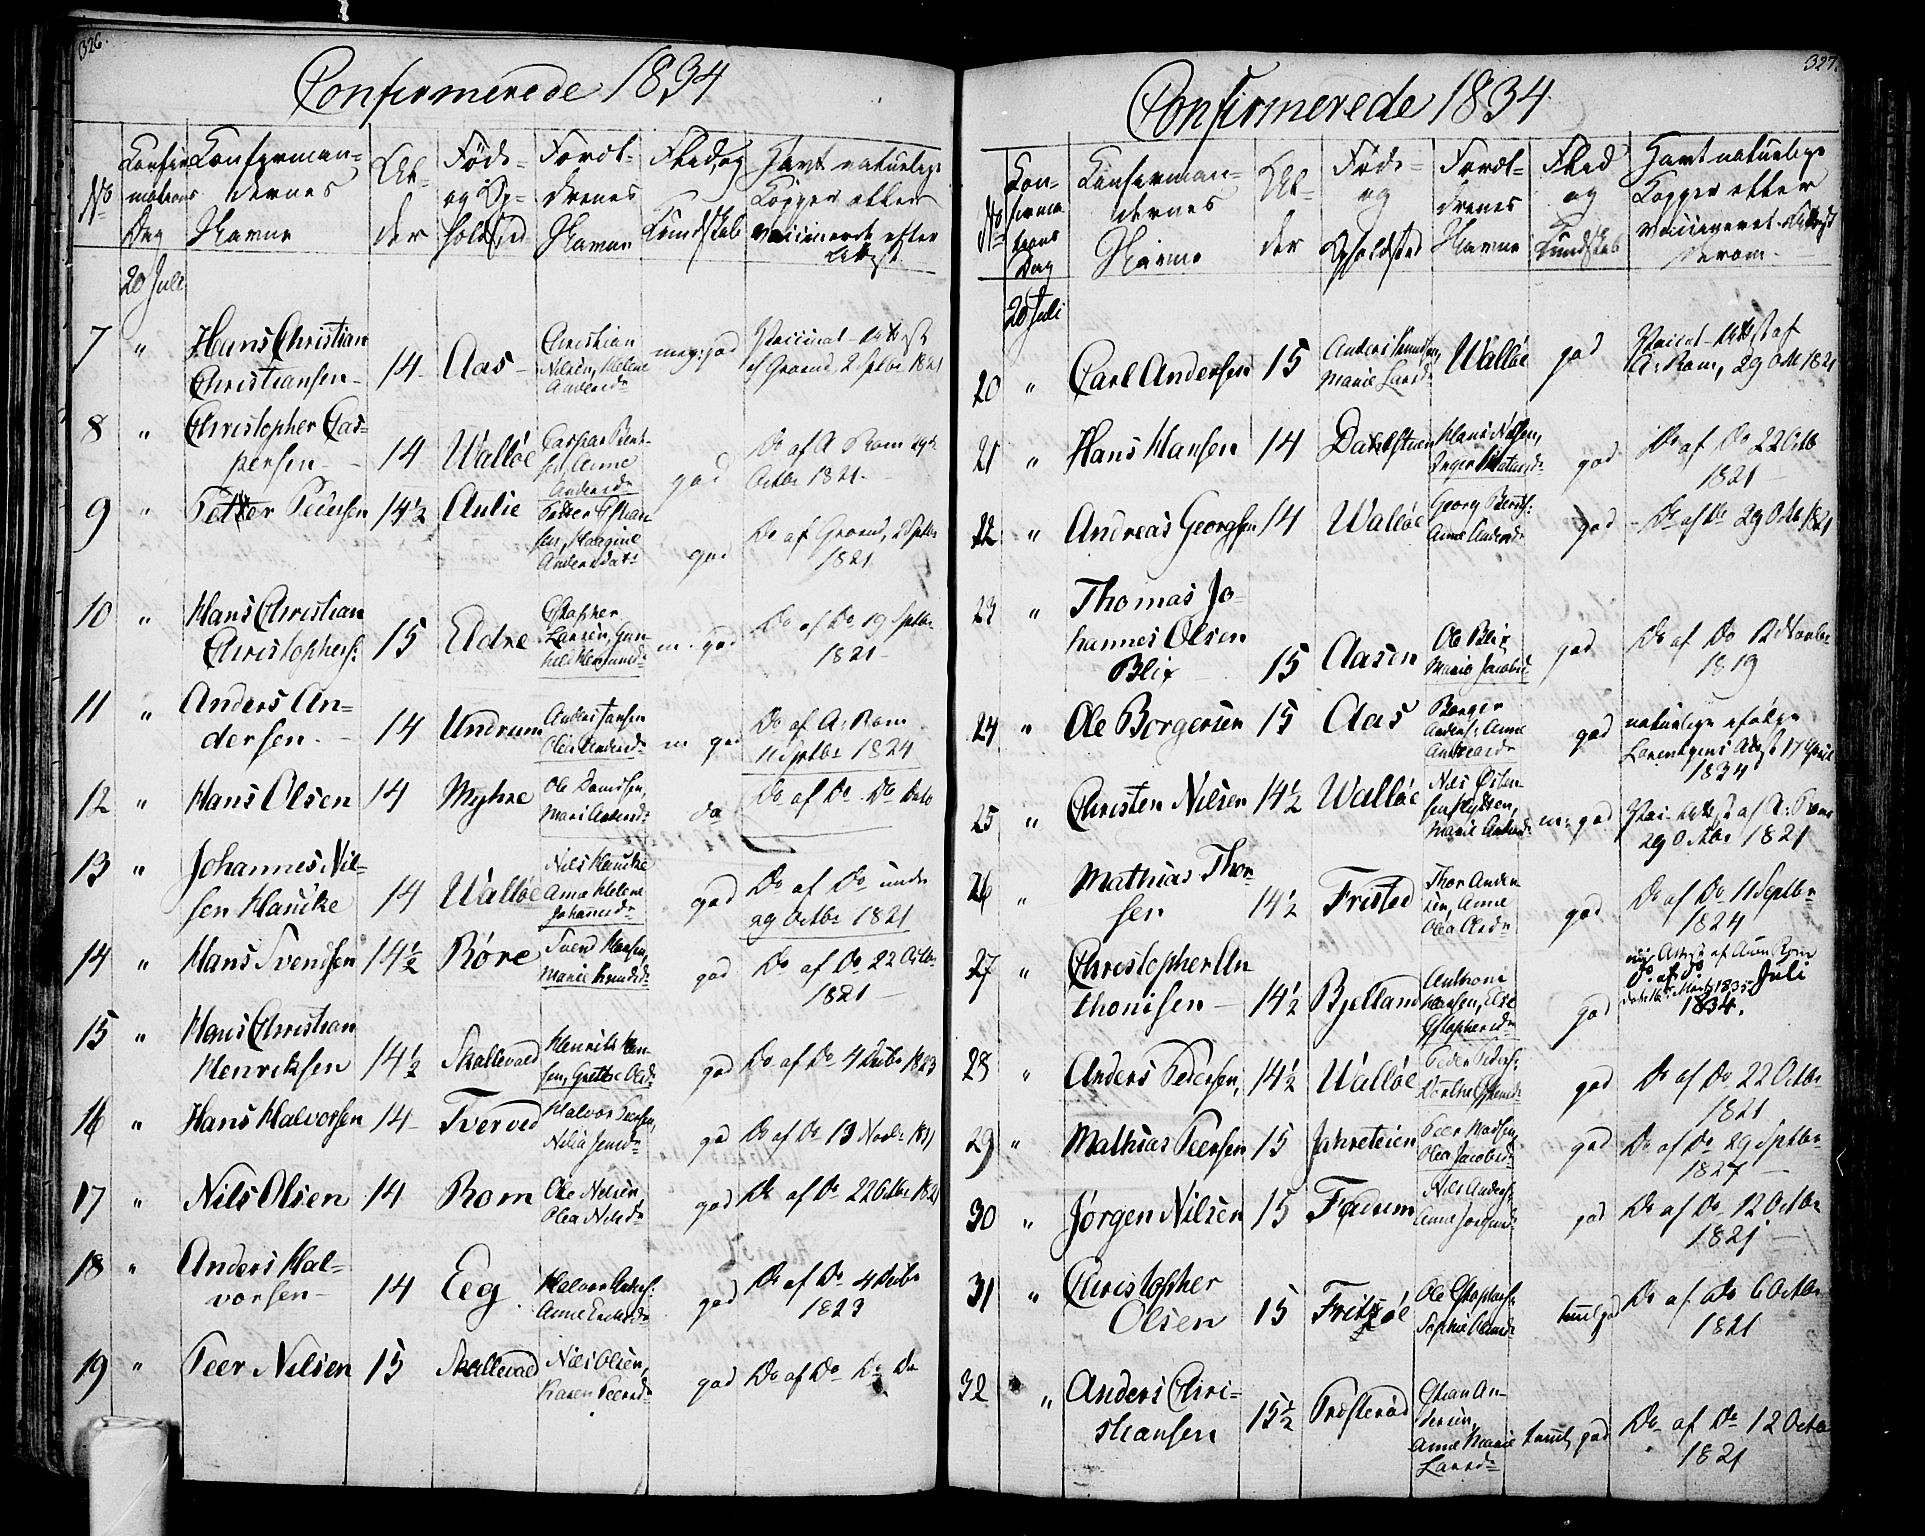 326.
Confirmerede 1834
No
Confir
mations
Dag
Confirman-
dernes
Navne
Al-
der
Føde-
og Op-
holdsted
Foræl-
drenes
Navne
Flid og
Kundskab
Havt naturlige
Kopper eller
vaccinerede efter
Attest
20 Juli
7 " Hans Christian
Christiansen 14 Aas
Christian
Nilsen, Helene
Andersd.
meg: god
Vaccinat. Attest
af Groend, 2 Septbr 1821
8 " Christopher Cas-
persen 14 Walløe
Caspar Bent-
sen, Anne
Andersd.
god
Do af A Rom 29de
Octbr 1821.
9 " Petter Pedersen 14½ Aulie
Andersdatr
god
Do af Groend, 2 Septbr
1821
10 " Hans Christian
Christophers: 15 Eldre
Chstopher
Larsen, Gun
hild
m. god
Do af Do 19 Septbr
1821
11 " Anders An-
dersen 14 Undrum
Anders Jansen
Olea Andersd.
m god
Do af A: Rom
11 Septbr 1824
12 " Hans Olsen 14 Myhre
Ole
Mari Andersd.
do
Do af Do Do Dato
13 " Johannes Nil-
sen Hauke 14 Walløe
Nils Hauke
Anne Helene
Johannesd.
god
Do af Do under
29 Octbr 1821
14 " Hans Svendsen 14½ Røre
Svend Hansen,
Marie Knudsd.
god
Do af Do 22 Octbr
1821
15 " Hans Christian
Henriksen 14½ Skallevald
Henrik Han-
sen, Grethe Olsd.
god
Do af Do 4 Decbr 1823
16 " Hans Halvorsen 14 Tverved
Halvor
god
Do af Do 13 Novbr 1821
17 " Nils Olsen 14 Rom
Ole Nelsen,
Olea Nilsd.
god
Do af Do 22 Octbr 1821
18 " Anders Hal-
vorsen 14 Eeg
Halvor Anders:
Anne
god
Do af Do 4 Decbr
1823
19 " Peer Nelsen 15 Skallevald
Niels Olsen,
Karen Peersd.
god
Do af Do Do Do
327.
Confirmerede 1834
No
Con-
firma
tions
Dag
Confirman-
dernes
Navne
Al-
der
Føde-
og
Opholdsted
Foræl-
drenes
Navne
Flid
og
Kundskab
Havt naturlige
Kopper eller
vaccineret. Attest
derom
20 Juli
20 " Carl Andersen 15
Anders Knudsen,
Marie Larsd.
Walløe god
Vaccinat. Attest af
A: Rom, 29 Octb 1821
21 " Hans Hansen 14
Hans Nilsen,
Inger
god
Do af Do 22 Octb
1821
22 " Andreas Georgsen 14 Walløe
Georg Bents:
Anne Andersd.
god
Do af Do 29 Octb 1821
23 " Thomas Jo-
hannes Olsen
Blix 15 Aasen
Ole Blix
Marie Jacobsd.
god
Do af Do 12 Novbr
1819
24 " Ole Borgersen 15 Aas
Borger
Anders: Anne
Andersd.
god
naturlige efølge
Attest 17 April
1834
25 " Christen Nilsen 14½ Walløe
Nils
Marie Andersd.
m: god
Vac. Attest af A: Rom
29 Octbr 1821
26 " Mathias Thor-
sen 14½ Fristed
Thor Ander
sen, Anne
Olea Olsd.
god
Do af Do 11 Septbr
1824
27 " Christopher An
thonisen 14½ Bjelland
Anthoni
Hansen, Else
Chstophersd.
god
Attest af Aum Rom
Do af Do Juli
Marts 1835
1834.
28 " Anders Pedersen, 14½ Walløe
Peder Peders:
god
Do af Do 22 Octbr
1821
29 " Mathias Peersen 15 Jahreteien
Peer Madsen,
Olea Jacobsd.
god
Do af Do 29 Septbr
1827
30 " Jørgen Nilsen 15 Fodrum
Nils Anders:
Anne
god
Do af Do 12 Octbr
1821
31 " Christopher
Olsen 15 Fritzøe
Ole Chstophers:
Sophie
god
Do af Do 6 Octbr
1821
32 " Anders Chri-
stiansen 15½ Trosterød
Chstian An-
dersen,
Anne Marie
Larsd.
god
Do af Do 12 Octbr
1821